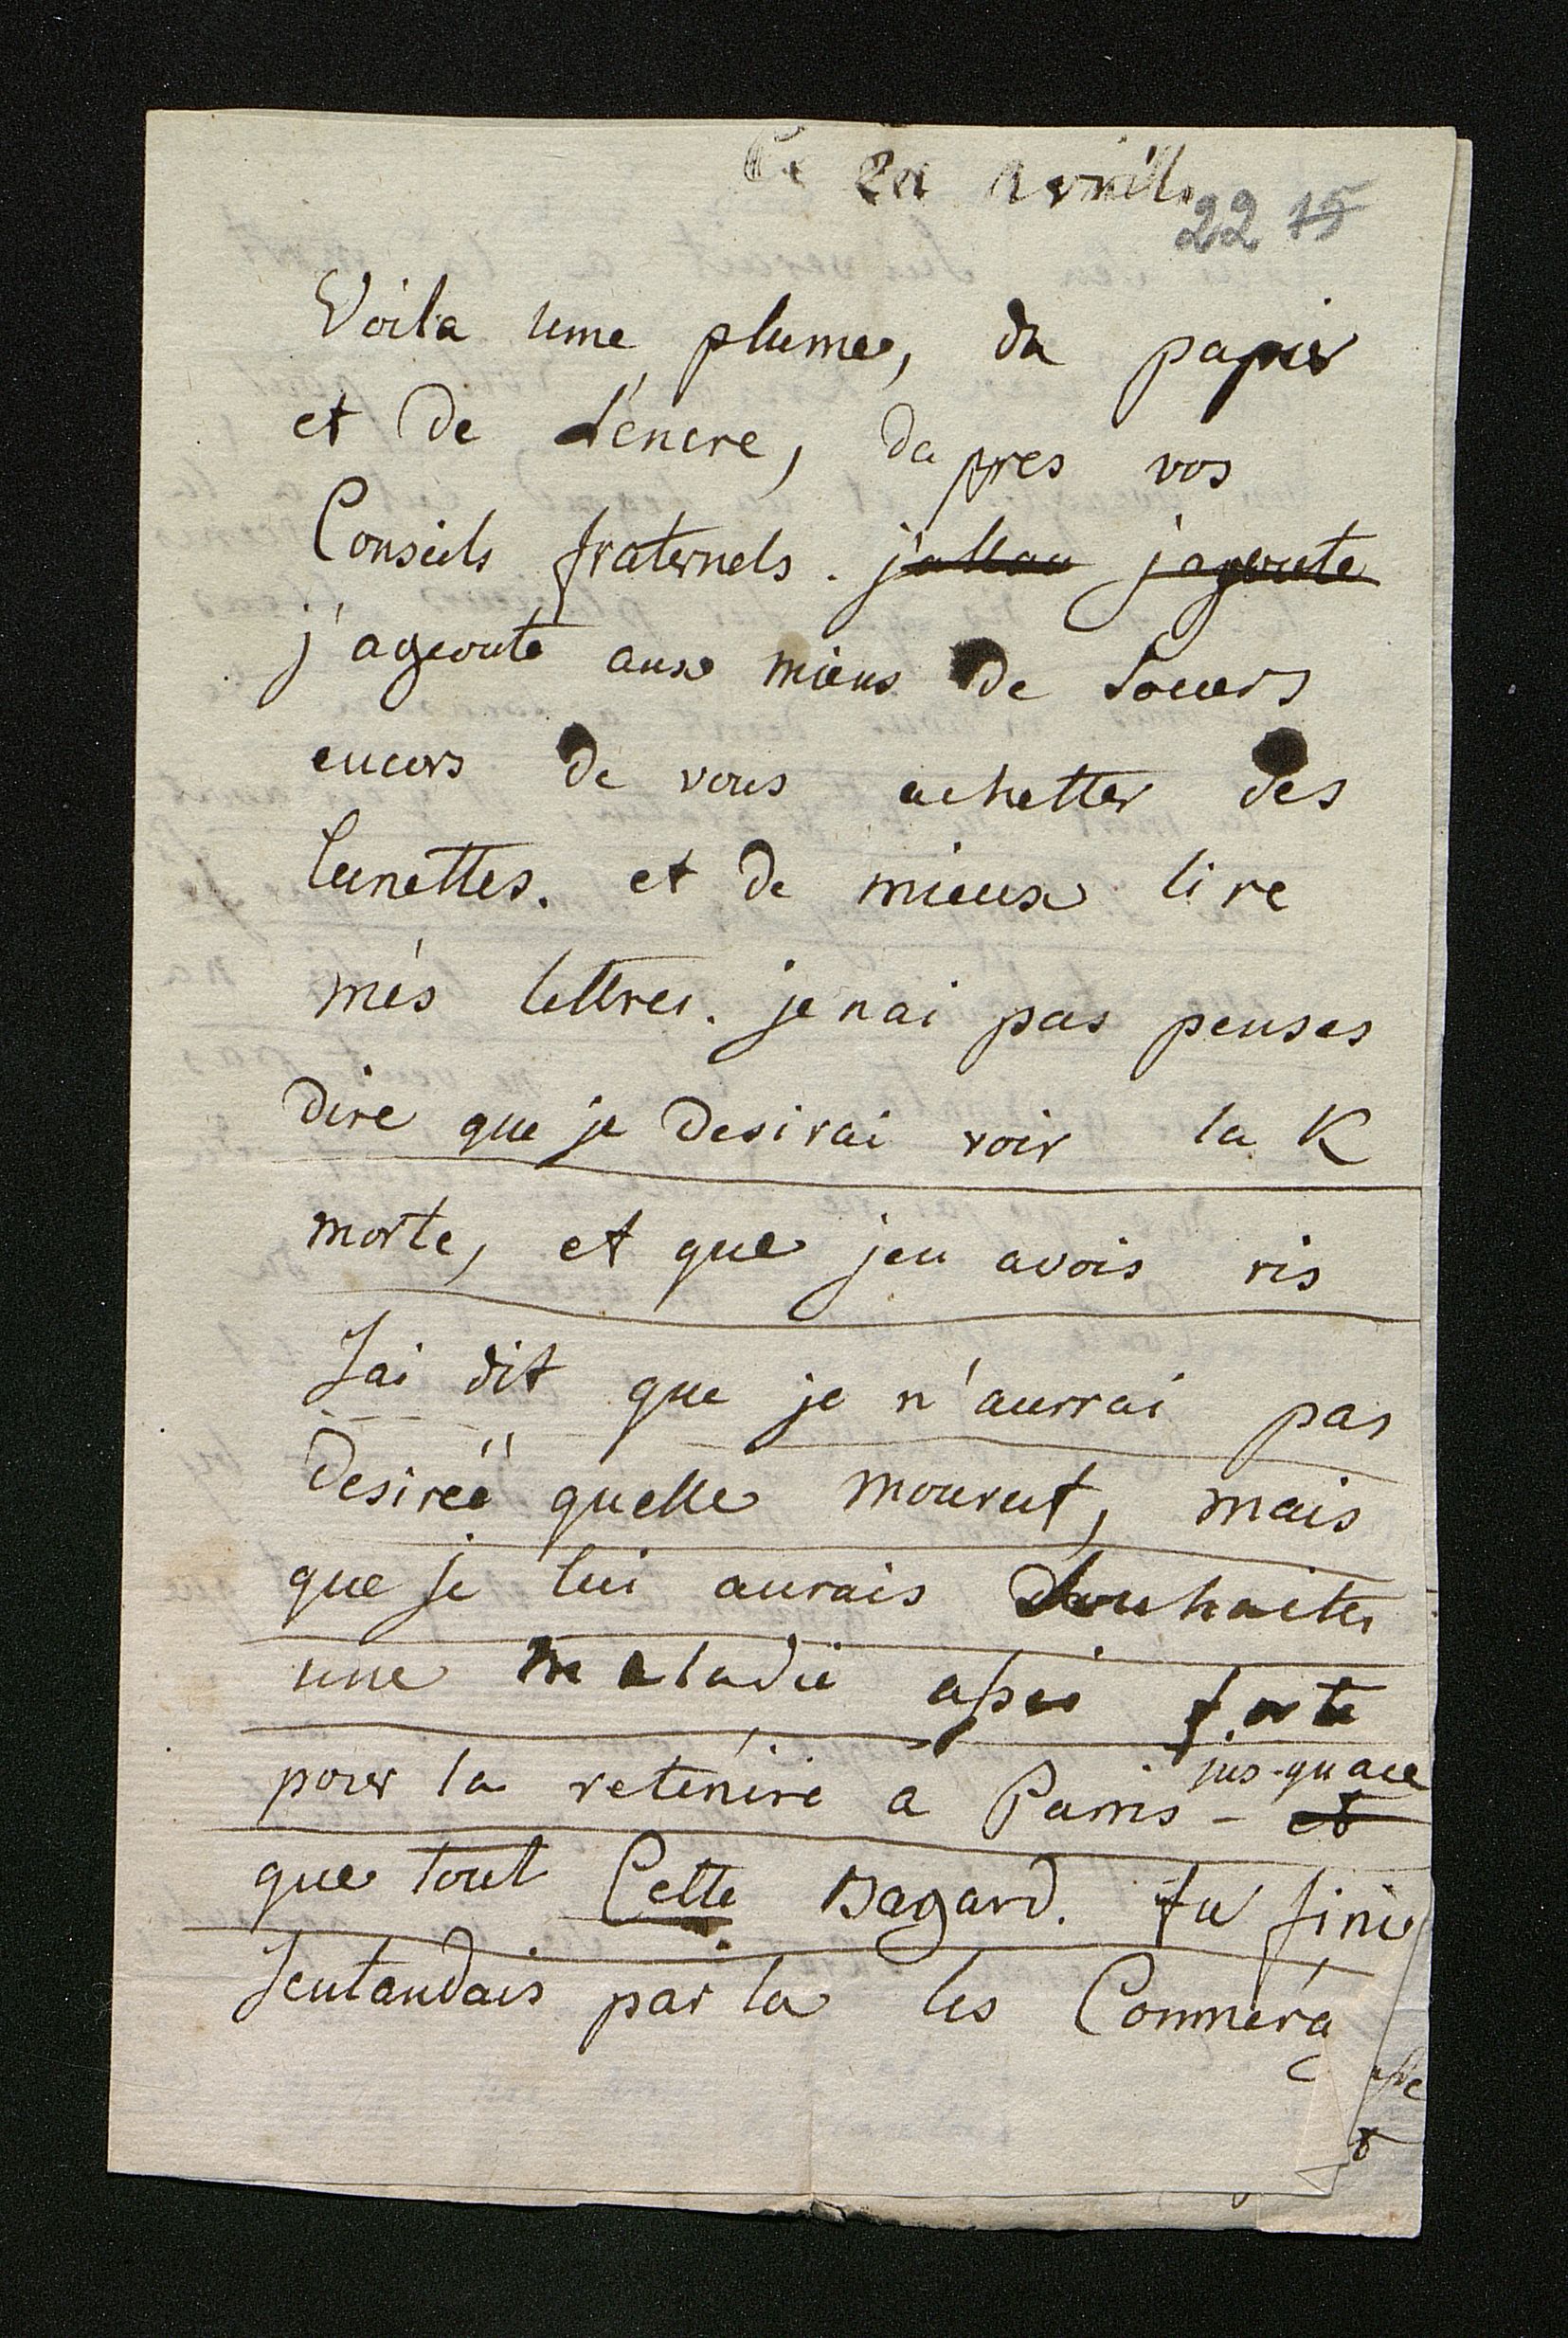 Ce 2d Avrill
22 15
Voila une plume, du papier
et de L'encre, da pres vos
Conseils fraternels. jallau jageoute
j'ageoute aux miens de Soeurs
encors de vous achetter des
lunettes. et de mieux lire
mes lettres. je nai pas penses
dire que je desirai voir la K
morte, et que jen avois ris
Jai dit que je n'aurrai pas
desireé quelle mourut, mais
que je lui aurais souhaiter
une maladie assés forte
pour la retenire a Parris - jus-quace
que tout Cette Bagard. fu finie
Jentandais par la les Commerag